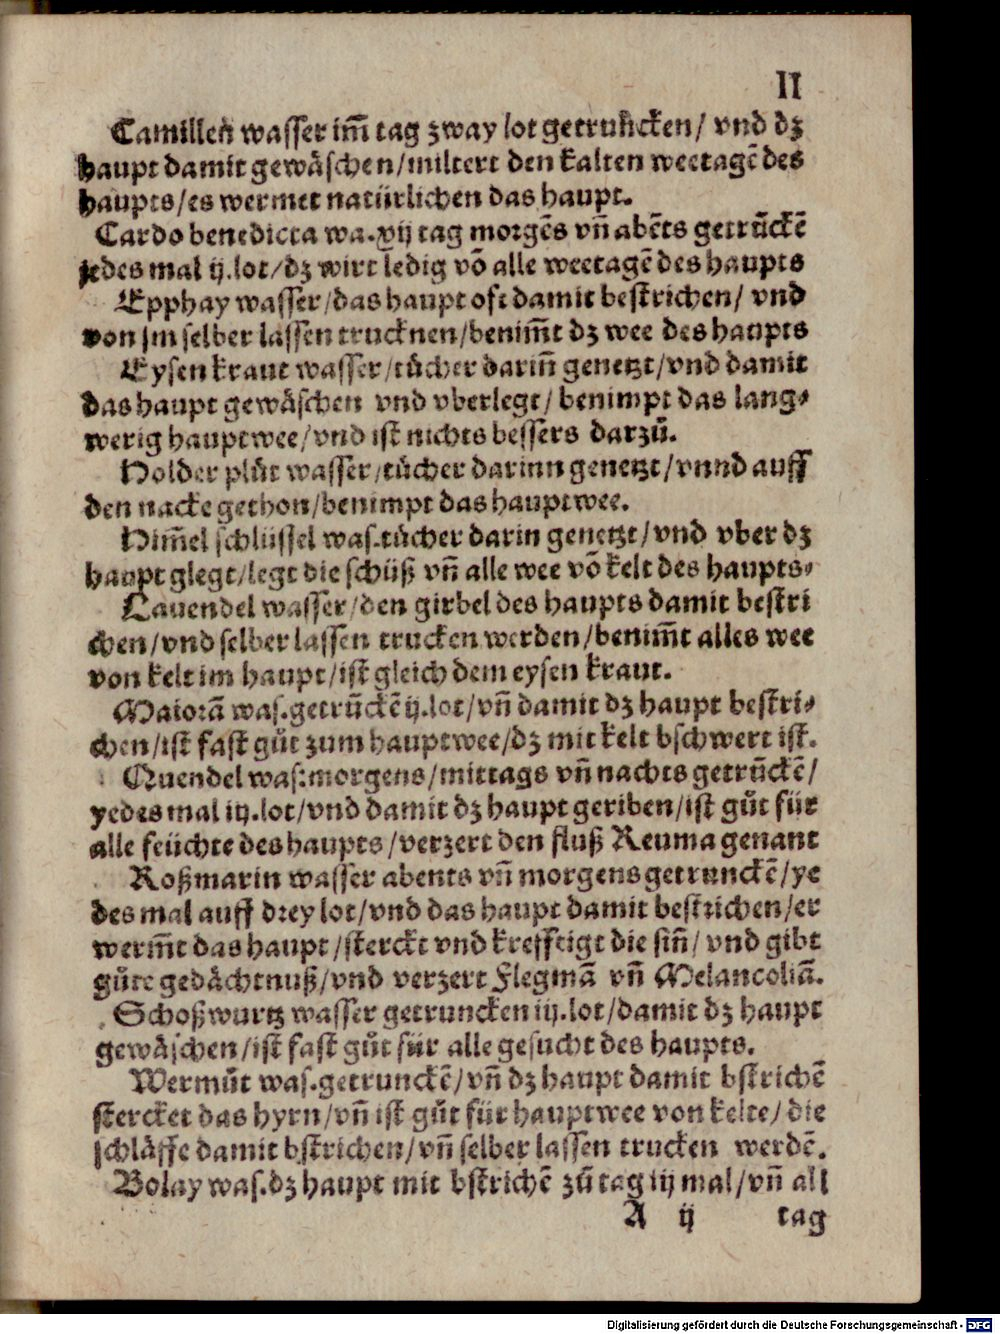 II
Camillen wasser im̄ tag zway lot getruncken/ vnd dz
haupt damit gewäschen/miltert den kalten weetagē des
haupts/es wermet natürlichen das haupt.
Cardo benedicta wa.xij tag morgēs vn̄ abēts getrūckē
jedes mal ij.lot/dz wirt ledig vō alle weetagē des haupts
Epphay wasser/das haupt oft damit bestrichen/ vnd
von jm selber lassen trucknen/benim̄t dz wee des haupts
Eysenkraut wasser/tücher darin̄ genetzt/vnd damit
das haupt gewäschen vnd vberlegt/ benimpt das lang⸗
werig hauptwee/vnd ist nichts bessers darzů.
Holder plůt wasser/tücher darinn genetzt/vnnd auff
den nacke gethon/benimpt das hauptwee.
Him̄el schlüssel was.tücher darin genetzt/vnd vber dz
haupt glegt/legt die schüß vn̄ alle wee vō kelt des haupts⸗
Lauendel wasser/den girbel des haupts damit bestri
chen/vnd selber lassen trucken werden/benim̄t alles wee
von kelt im haupt/ist gleich dem eysen kraut.
Maiorā was.getrūckē ij.lot/vn̄ damit dz haupt bestri⸗
chen/ist fast gůt zum hauptwee/dz mit kelt bschwert ist.
Quendel was:morgens/mittags vn̄ nachts getrūckē/
yedes mal iij.lot/vnd damit dz haupt geriben/ist gůt für
alle feüchte des haupts/verzert den fluß Reuma genant
Roßmarin wasser abents vn̄ morgens getrunckē/ye
des mal auff drey lot/vnd das haupt damit bestrichen/er
werm̄t das haupt/sterckt vnd krefftigt die sin̄/ vnd gibt
gůte gedächtnuß/vnd verzert Flegmā vn̄ Melancoliā.
Schoßwurtz wasser getruncken iij.lot/damit dz haupt
gewäschen/ist fast gůt für alle gesucht des haupts.
Wermůt was.getrunckē/vn̄ dz haupt damit bstrichē
stercket das hyrn/vn̄ ist gůt für hauptwee von kelte/ die
schläffe damit bstrichen/vn̄ selber lassen trucken werdē.
Bolay was.dz haupt mit bstrichē zů tag iij mal/vn̄ all
A ij tag
Digitalisierung gefördert durch die Deutsche Forschungsgemeinschaft - DFG